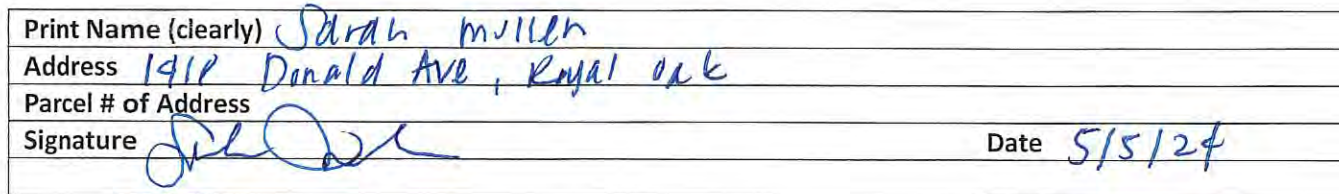 Print Name (clearly) Sarah Mullen
Address Donald Ave, Royal Oak
Parcel # of Address
Signature
Date 5/5/24